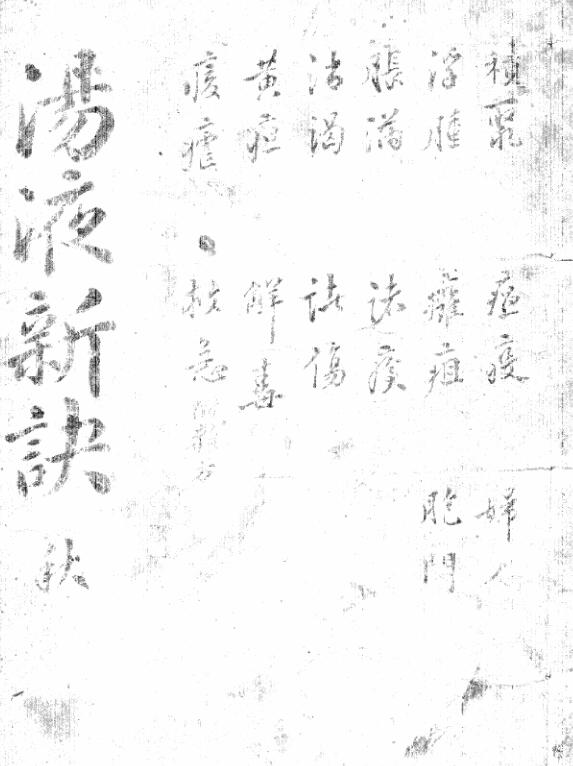 積聚 瘟疫 婦人
浮腫 癰疽 胞門
脹滿 諸瘡
消渴 諸傷
黃疸 解毒
痎瘧 救急
湯液新訣 秋